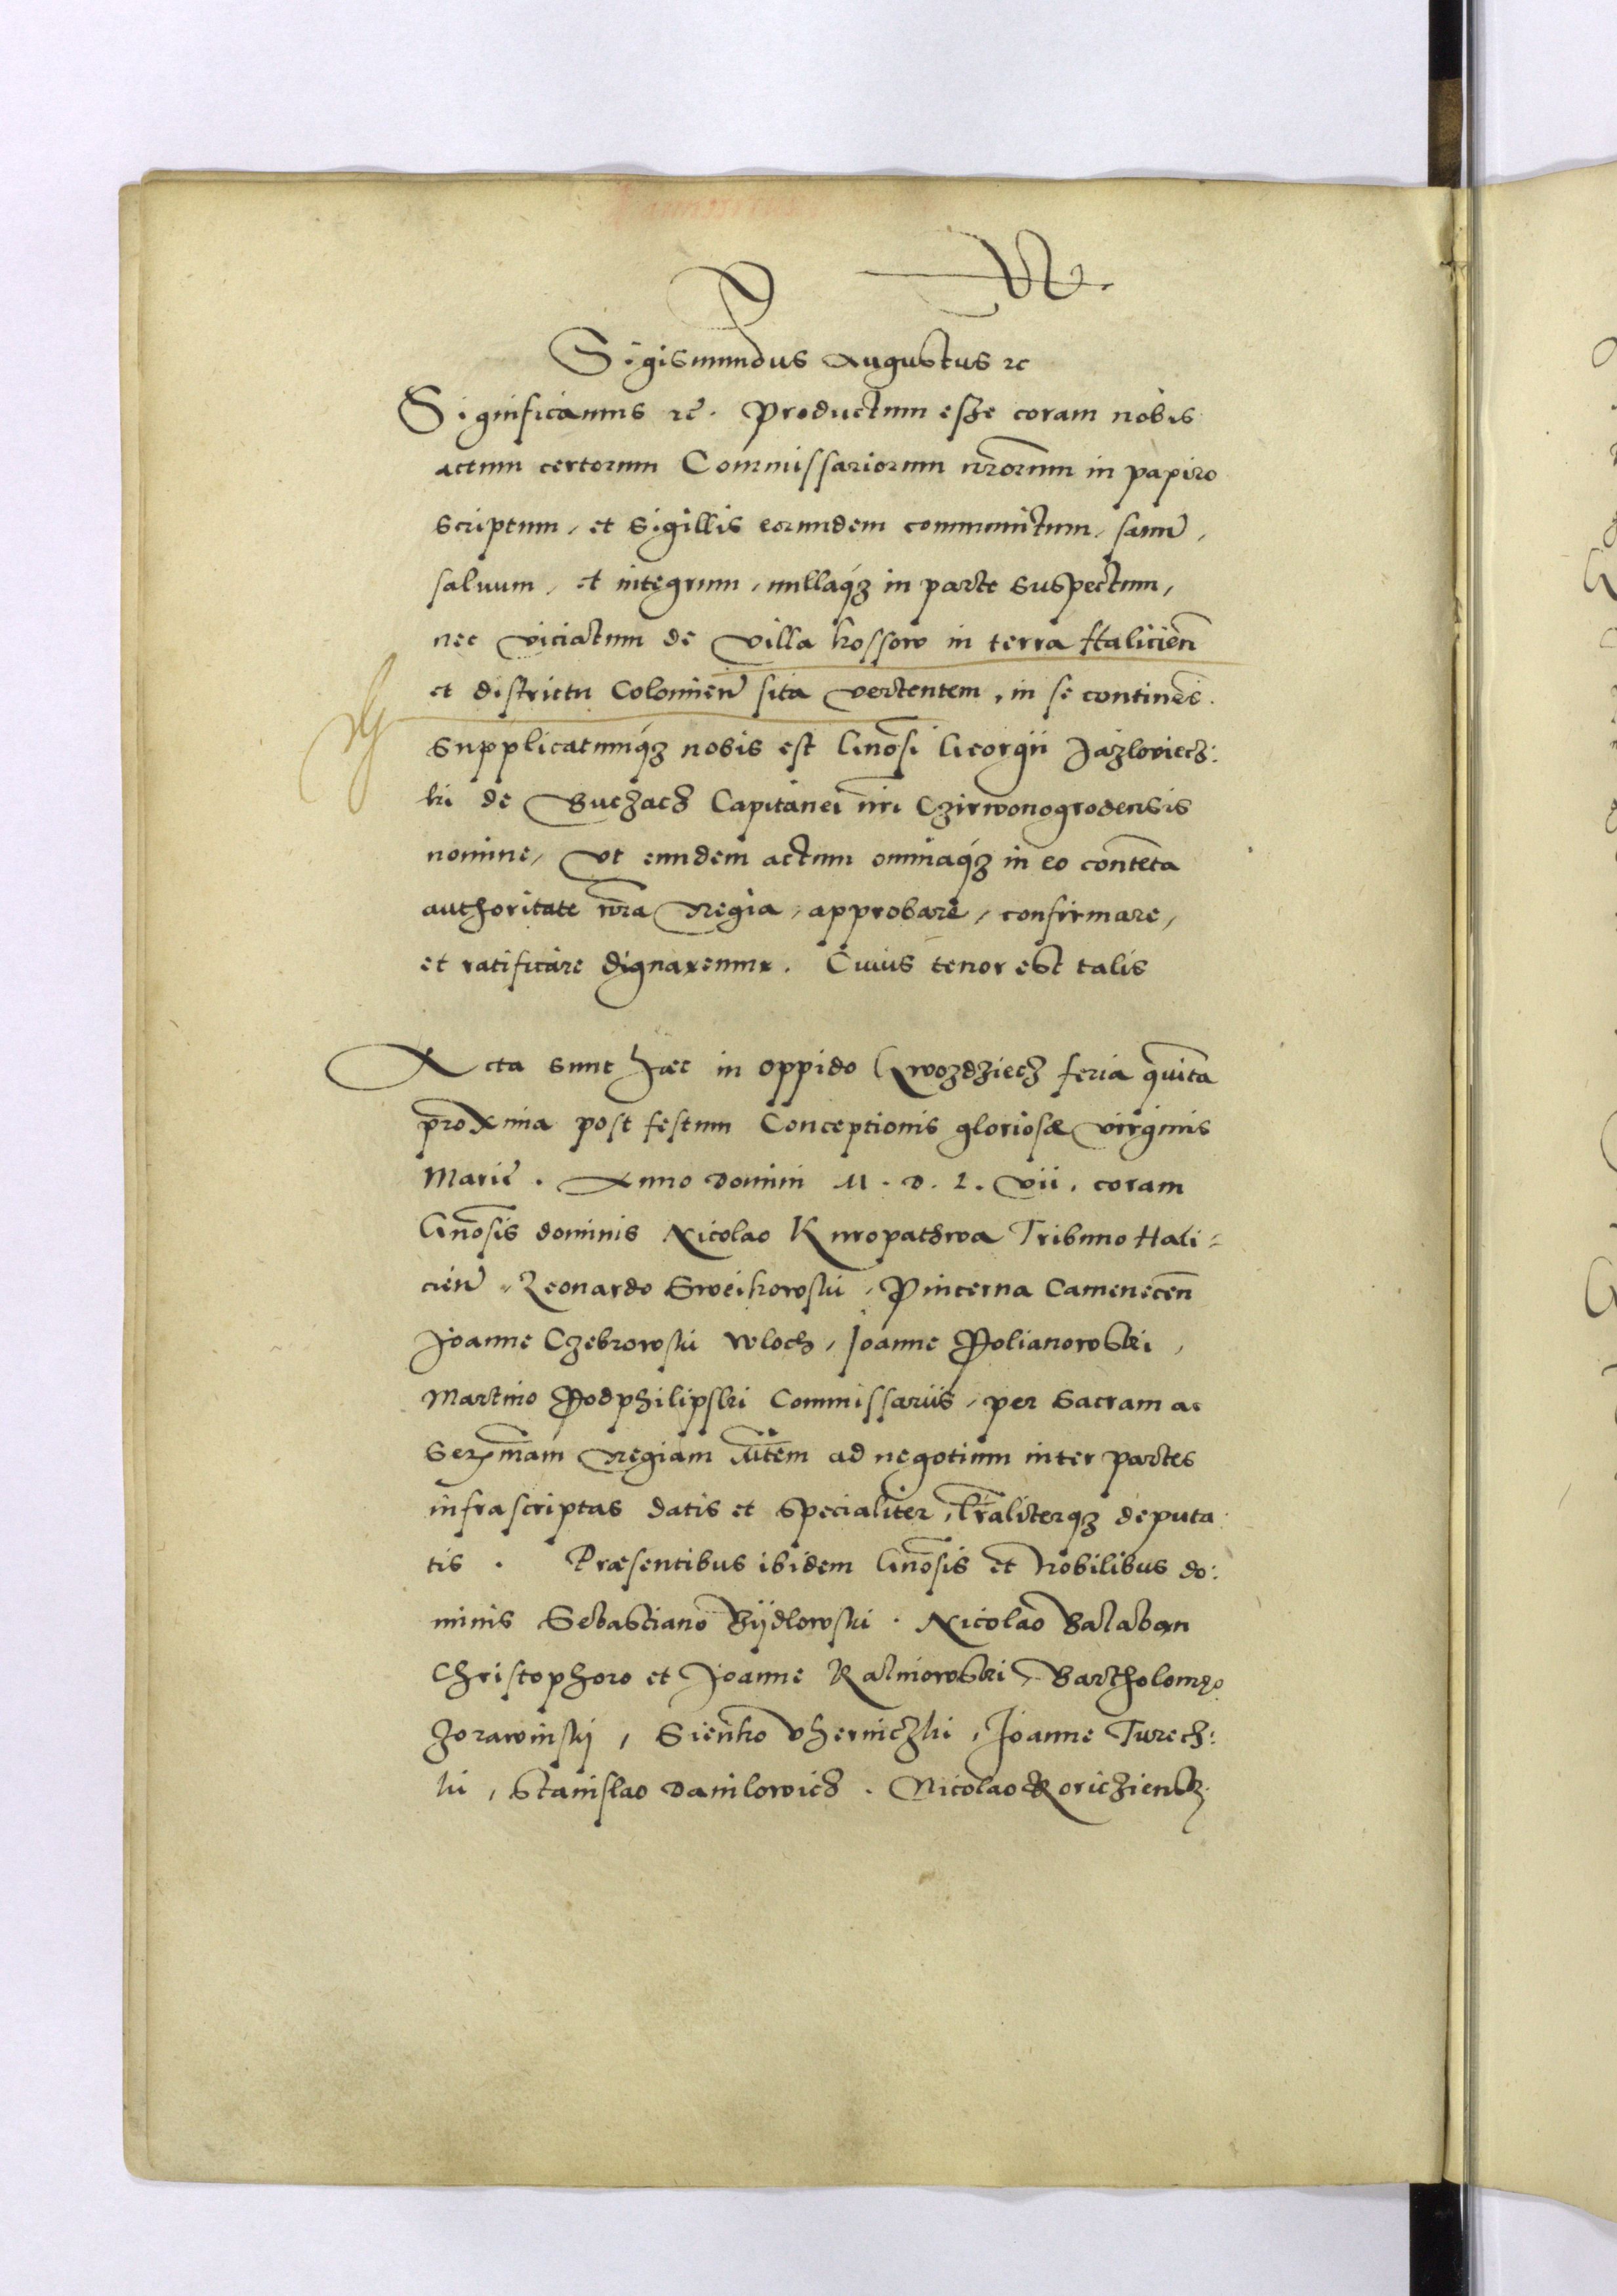 Sigismundus Augustus ꝛc
Significamus ꝛc̃. Productum esse coram nobis
actum certorum Commissariorum nr̃orum in papiro
scriptum, et sigillis eorundem communitum, sanũ,
saluum, et integrum, nullaq́ꝫ in parte suspectum,
nec viciatum de villa kossow in terra Halicień
et districtu Colomień sita vertentem, in se contineñ.
Supplicatumq́ꝫ nobis est Gñosi Georgii Jazlowiecz:
ki de Buczacz Capitanei nr̃i Czirwonogrodensis
nomine, vt eundem actum omniaq́ꝫ in eo contẽta
authoritate nr̃a Regia, approbare, confirmare,
et ratificare dignaremur. Cuius tenor est talis
Acta sunt hæc in oppido Gwozdziecz feria quĩta
proxima post festum Conceptionis gloriosæ virginis
Marie. Anno domini M. D. L. vii. coram
Gñosis dominis Nicolao Kuropathwa Tribuno Hali=
cień, Leonardo Sweikowski, Pincerna Cameneceñ
Joanne Czebrowski wloch, Joanne Polianowski,
Martino Podphilipski Commissariis, per Sacram ac
Serm̃am Regiam Mt̃em ad negotium inter partes
infrascriptas datis et specialiter, lr̃aliterqꝫ deputa
tis. Præsentibus ibidem Gñosis et Nobilibus do:
minis Sebastiano Bydlowski. Nicolao Balaban
Christophoro et Joanne Kalinowski, Bartholomęo
Zorawinskj, Sieńko vherniczki, Joanne Turecz:
ki, Stanislao Danilowicz. Nicolao